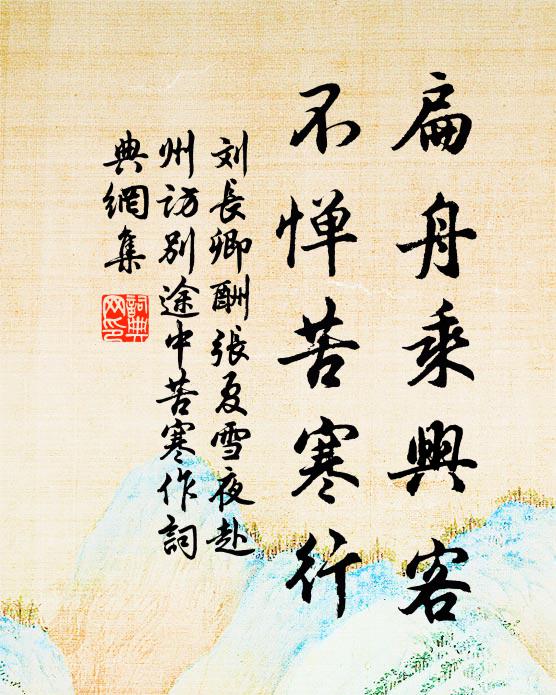 扁舟乘興客
不惮苦寒行
刘長卿酬張夏雪夜赴
州訪别途中苦寒作詞
典網集
詞典
网印